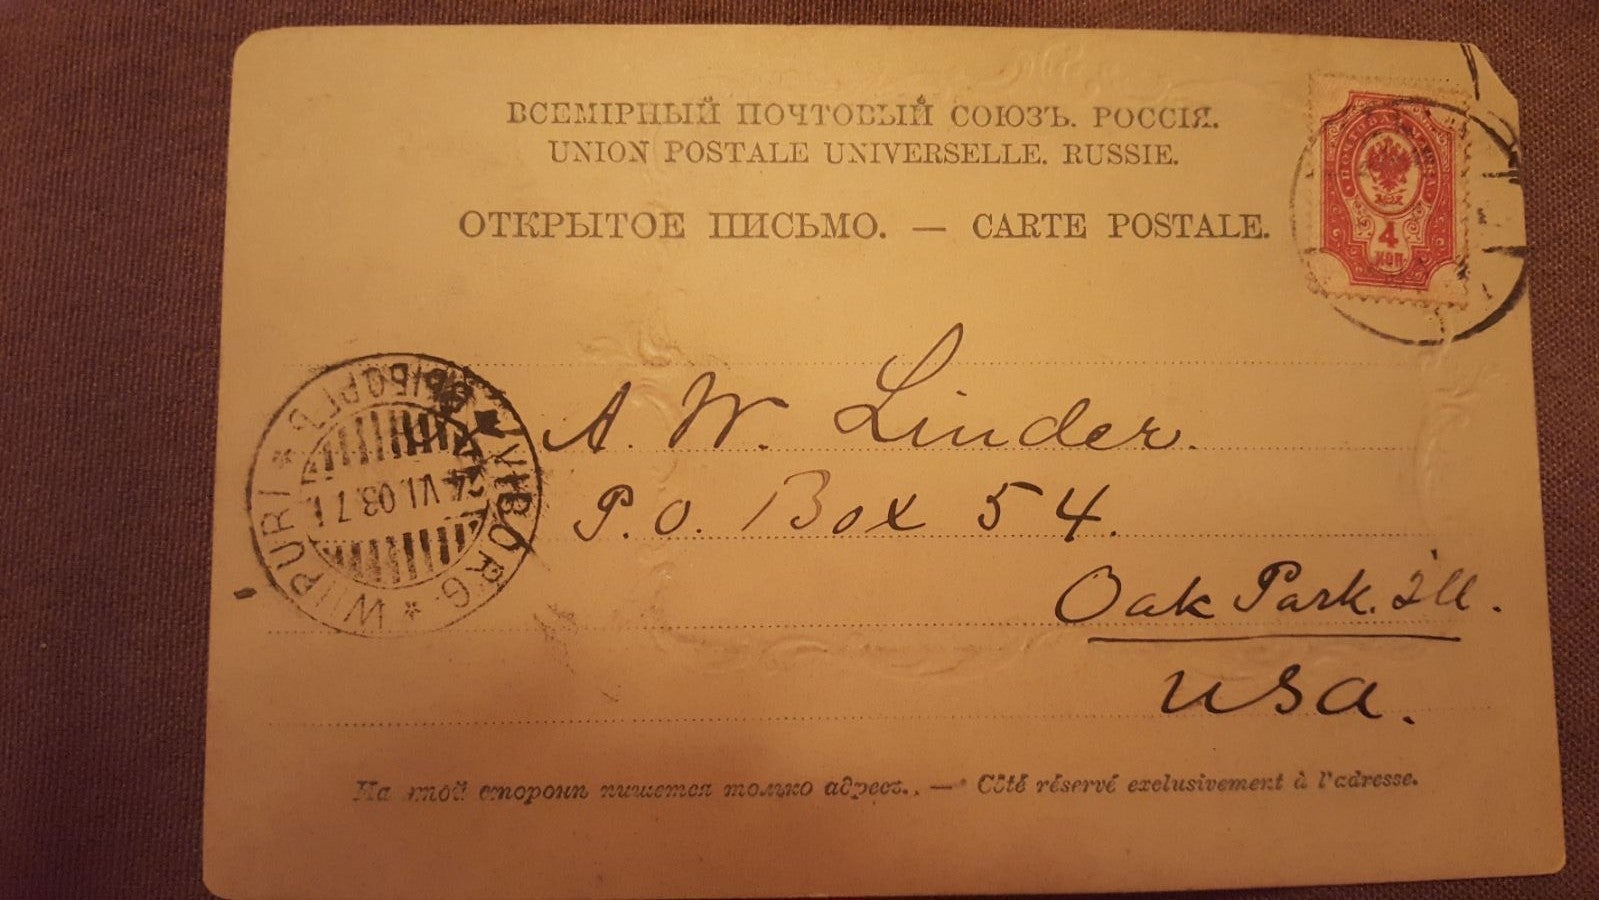 ВСЕМІРНЫЙ ПОЧТОВЫЙ СОЮЗЪ. РОССІЯ.
UNION POSTALE UNIVERSELLE. RUSSIE.
ОТКРЫТОЕ ПИСЬМО. — CARTE POSTALE.
4
КОП.
A. W. Linder.
P.O. Box 54.
Oak Park. Ill.
USA.
WIIPURI * ВЫБОРГЪ * WIBORG *
24.VI.03.7 I.
На этой сторонѣ пишется только адресъ. — Côté réservé exclusivement à l'adresse.